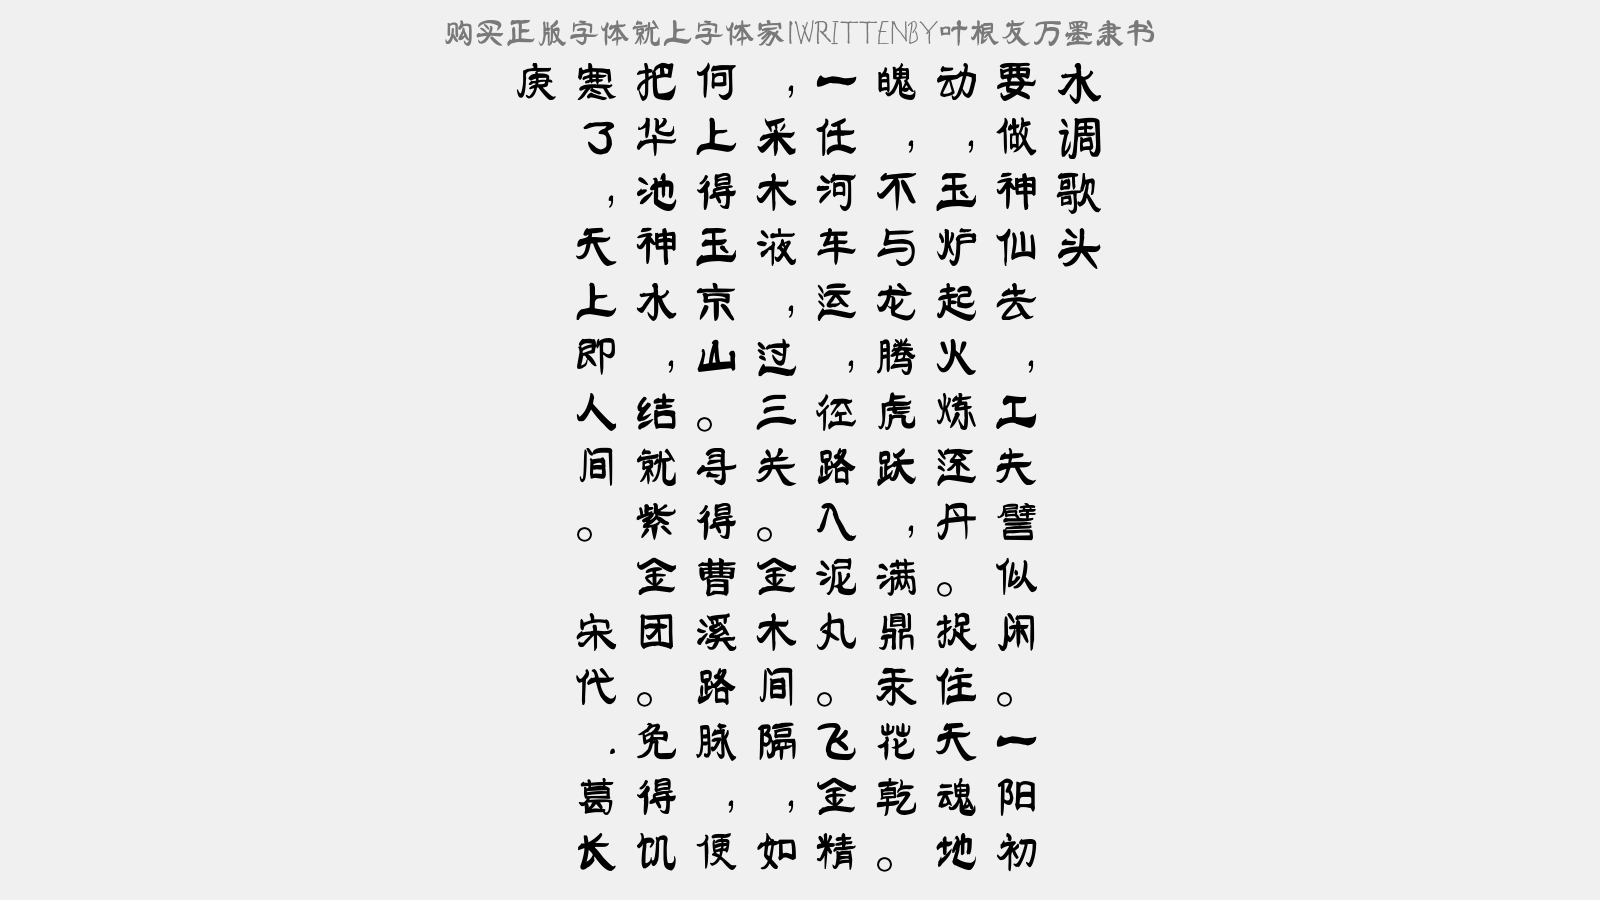 购买正版字体就上字体家|WRITTENBY叶根友万墨隶书
水调歌头
要做神仙去，工夫譬似闲。一阳初
动，玉炉起火炼还丹。捉住天魂地
魄，不与龙腾虎跃，满鼎汞花乾。
一任河车运，径路入泥丸。飞金精
，采木液，过三关。金木间隔，如
何上得玉京山。寻得曹溪路脉，便
把华池神水，结就紫金团。免得饥
寒了，天上即人间。 宋代.葛长
庚